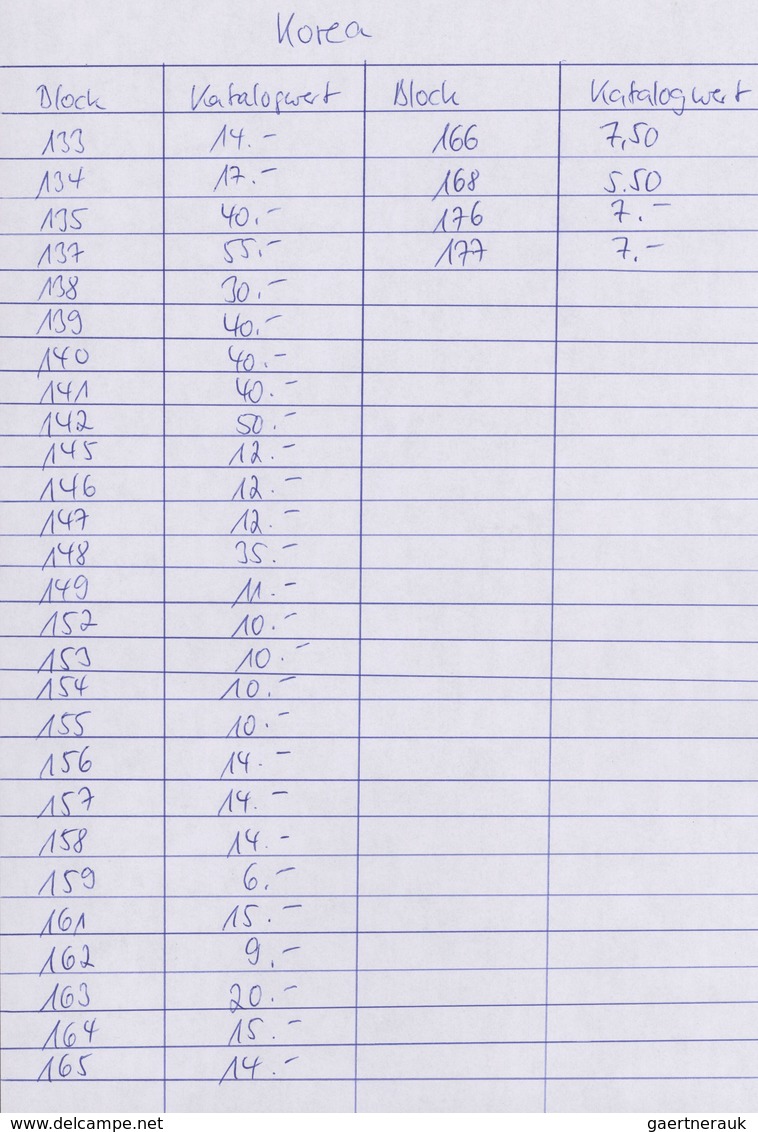 Korea
Block Katalogwert Block Katalogwert
133 14.- 166 7,50
134 17.- 168 5.50
135 40.- 176 7.-
137 55.- 177 7.-
138 30.-
139 40.-
140 40.-
141 40.-
142 50.-
145 12.-
146 12.-
147 12.-
148 35.-
149 11.-
152 10.-
153 10.-
154 10.-
155 10.-
156 14.-
157 14.-
158 14.-
159 6.-
161 15.-
162 9.-
163 20.-
164 15.-
165 14.-
www.delcampe.net gaertnerauk